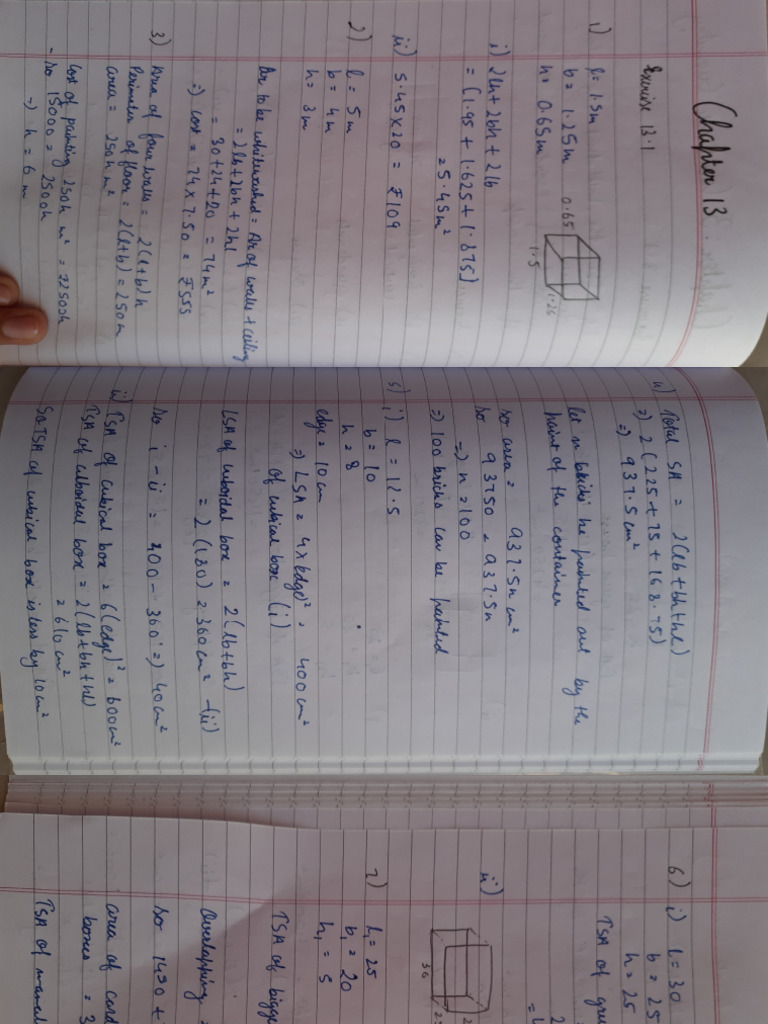 Chapter 13
Exercise 13.1
1) l = 1.5m
b = 1.25m
h = 0.65m
0.65
1.5
1.25
i) 2lh + 2bh + 2lb
= (1.95 + 1.625 + 1.875)
= 5.45m²
ii) 5.45 x 20 = ₹109
2) l = 5m
b = 4m
h = 3m
Ar to be whitewashed = Ar of walls + ceiling
= 2lh + 2bh + 2hl
= 30 + 24 + 20 = 74m²
=) cost = 74 x 7.50 = ₹555
3) Area of four walls = 2(l+b)h
Perimeter of floor = 2(l+b) = 250m
area = 250h m²
Cost of painting 250h m² = ₹2500h
So 15000 = 2500h
=) h = 6 m
4) Total SA = 2(lb + bh + hl)
=) 2(225 + 75 + 168.75)
=) 937.5 cm²
let n bricks be painted out by the
paint of the container
so area = 937.5n cm²
so 93750 = 937.5n
=) n = 100
=) 100 bricks can be painted
5) i) l = 12.5
b = 10
h = 8
edge = 10 cm
=) LSA = 4 x (edge)² = 400 cm²
of cubical box (i)
LSA of cuboidal box = 2(lb + bh)
= 2(180) = 360 cm² -(ii)
So i - ii = 400 - 360 =) 40 cm²
ii) TSA of cubical box = 6(edge)² = 600 cm²
TSA of cuboidal box = 2(lb + bh + hl)
= 610 cm²
So TSA of cubical box is less by 10 cm²
6) i) l = 30
b = 25
h = 25
TSA of
ii)
30
7) l₁ = 25
b₁ = 20
h₁ = 5
TSA of
Overlapping
So 1450 +
area of
boxes = 3
TSA of